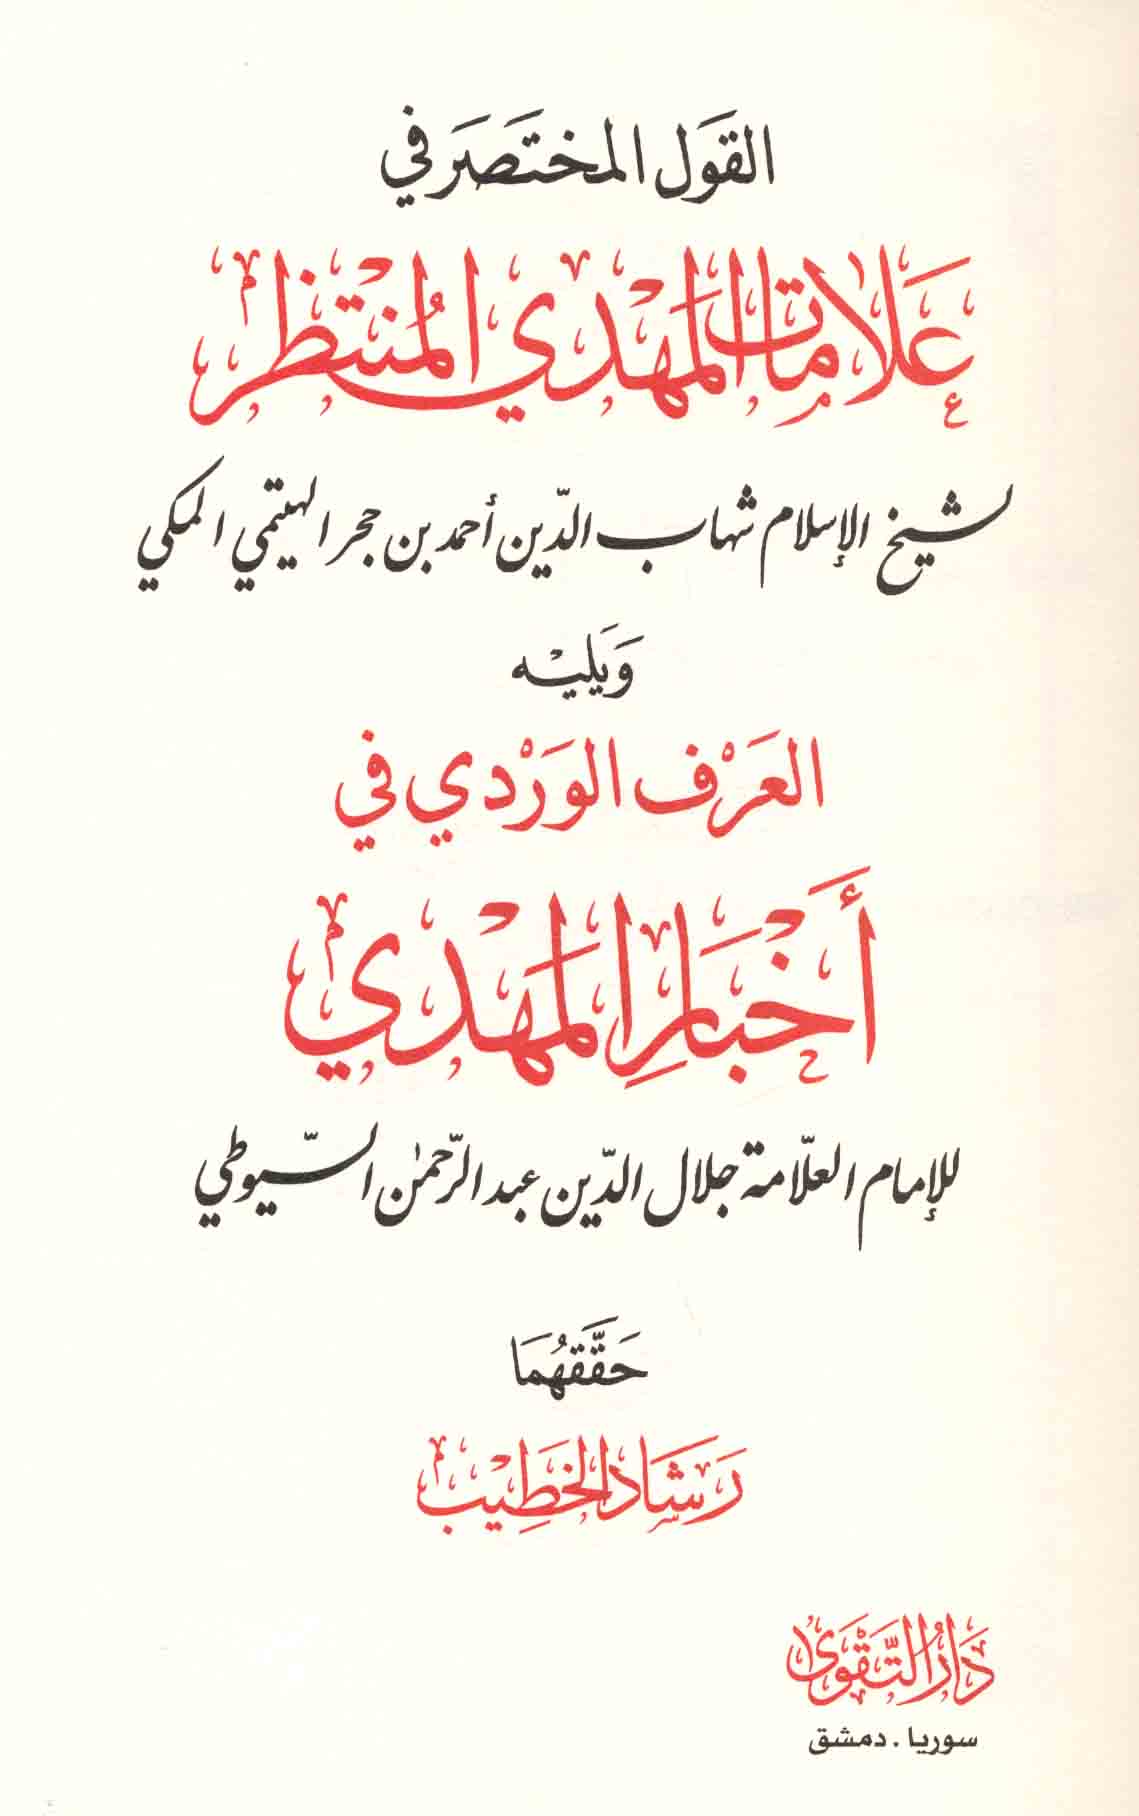 القَول المختَصَر في
عَلامات المَهْدي المُنتظر
لشيخ الإسلام شهاب الدّين أحمد بن حجر الهيتمي المكي
وَيَليْه
العَرْف الوَرْدي في
أَخْبَارِ المَهْدي
للإمام العلّامة جلال الدّين عبد الرّحمٰن السّيوطي
حَقَّقَهُمَا
رَشَاد الخَطِيب
دَارُ التَّقْوَى
سوريا . دمشق